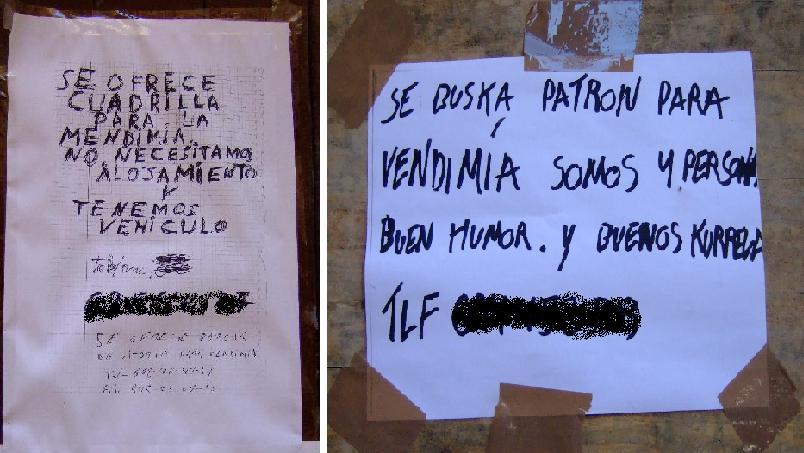 SE OFRECE
CUADRILLA
PARA LA
MENDIMIA.
NO NECESITAMOS
ALOJAMIENTO
Y
TENEMOS
VEHICULO
SE OFRECE
SE BUSKA PATRON PARA
VENDIMIA SOMOS 4 PERSONA
BUEN HUMOR. Y BUENOS KURRELA
TLF